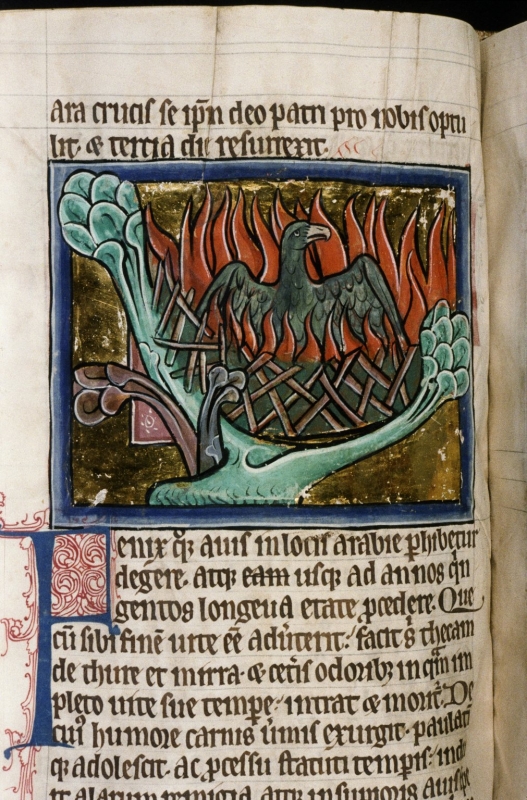 ara crucis se ip̄m deo patri pro nobis optu
lit. & tercia die resurrexit.
Fenix qͦꝫ auis in locis arabie ꝑhibetur
degere. atqꝫ eam usqꝫ ad annos q̄n
gentos longeua etate ꝓcedere. Que
cū sibi finē uite eē aduterit: facit s̄ thecam
de thure et mirra & cet̄is odoribꝫ in q̄m im
pleto uite sue tempe. intrat & morit̄. De
cuiꝰ humore carnis u̇mis exurgit. paulati
qꝫ adolescit. ac ꝓcessu statuti temp̄is. ind